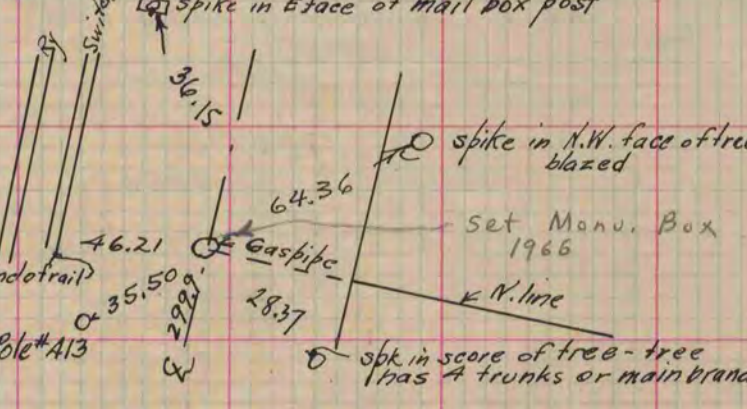 spike in E face of mail box post
Ry
36.15
spike in N.W. face of tree
blazed
64.36
Set Monu. Box
1966
46.21
Gaspipe
35.50
299.9
28.37
N. line
Pole #A13
spk in score of tree - tree
has 4 trunks or main